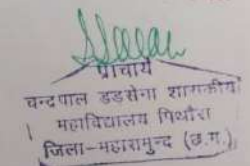 प्राचार्य
चन्दपाल डडसेना शासकीय
महाविद्यालय पिथौरा
जिला-महासमुन्द (छ.ग.)